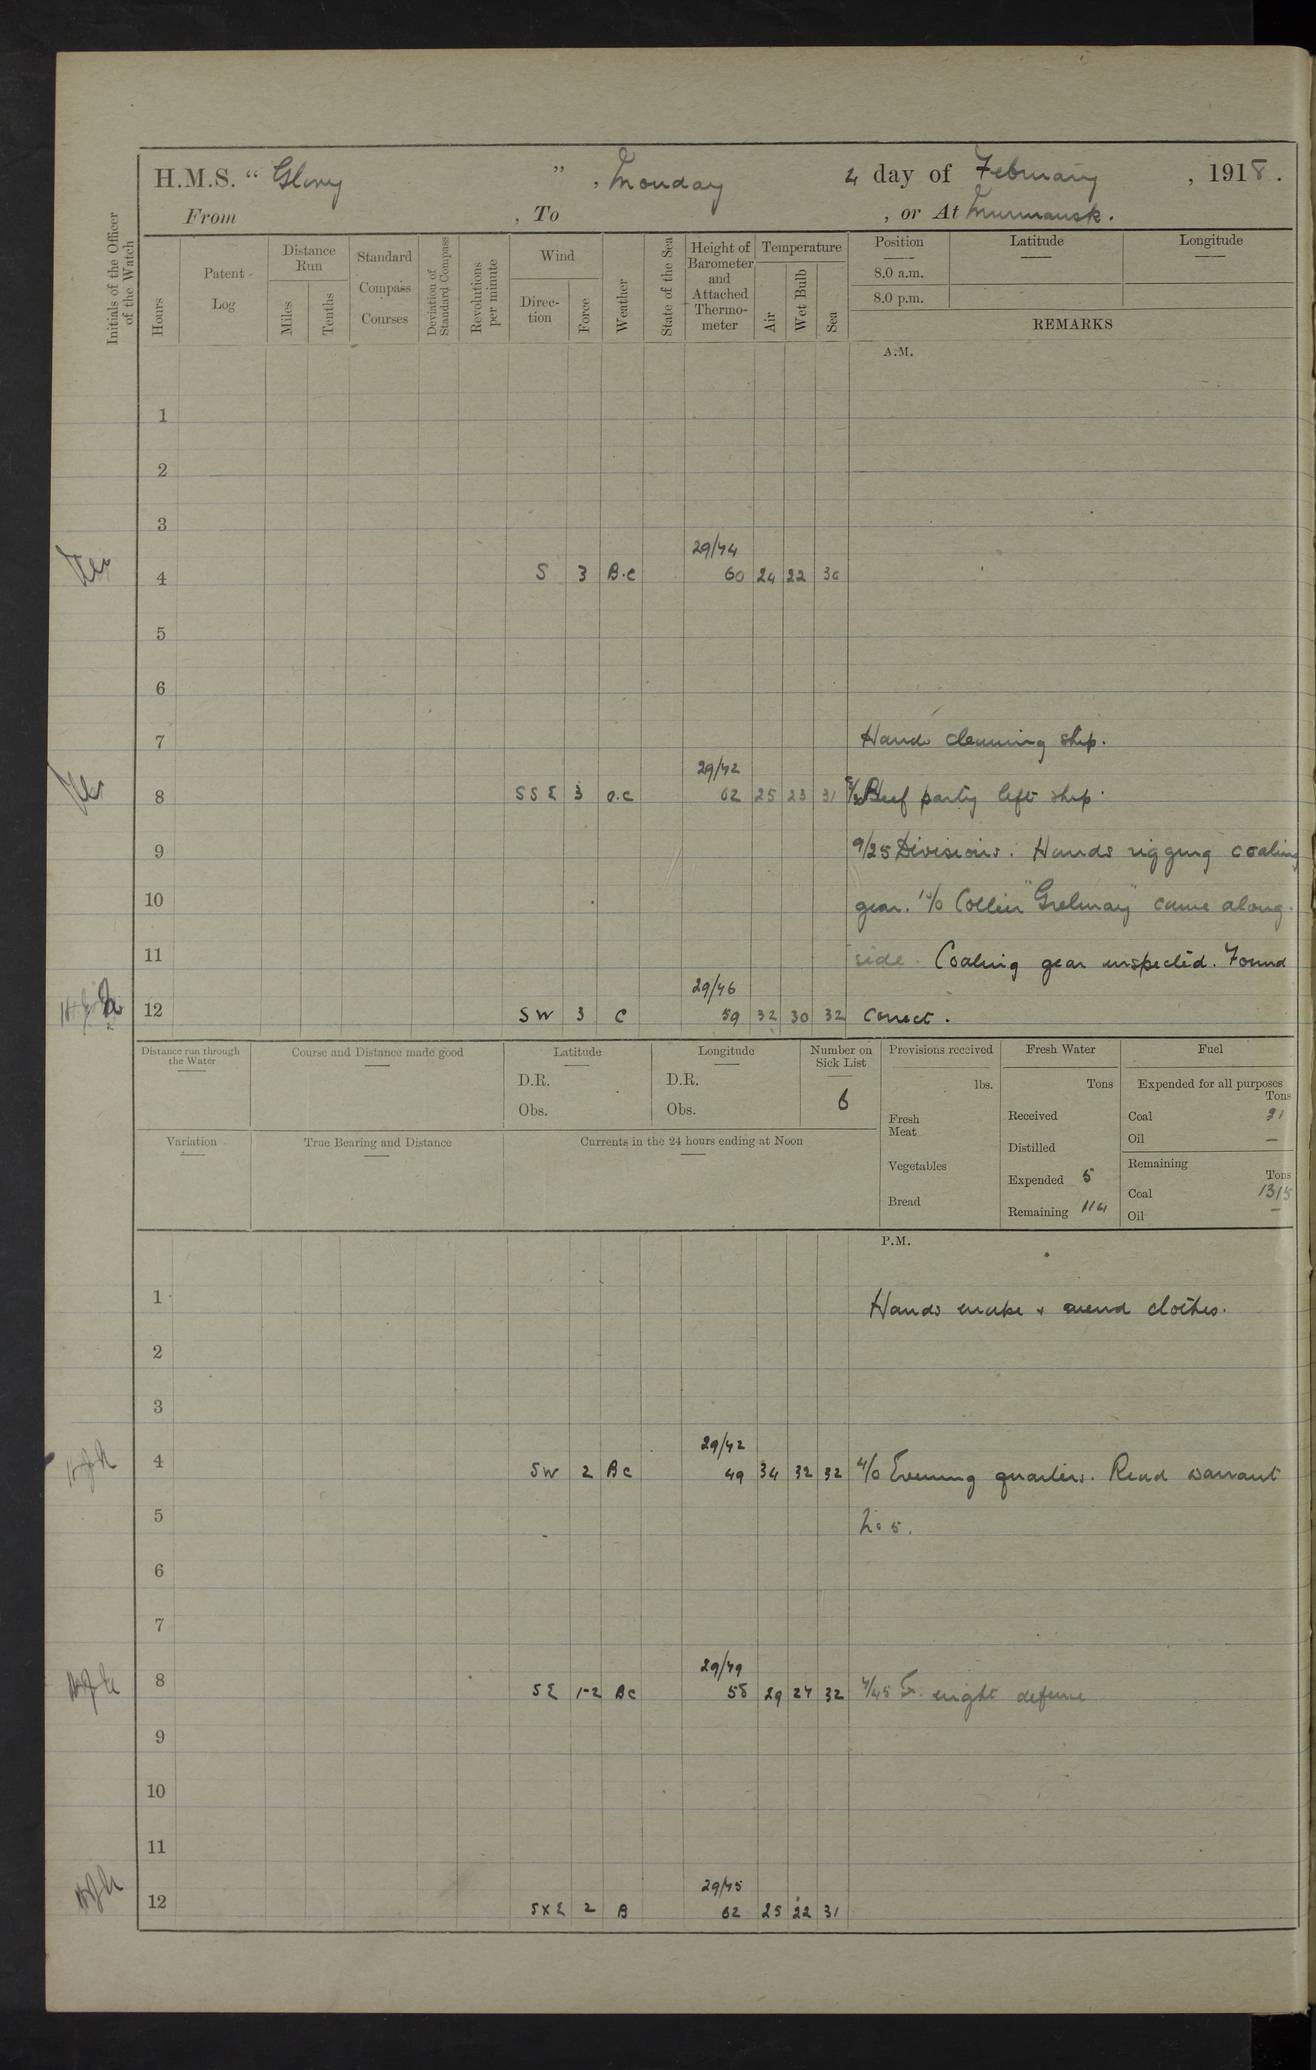 H.M.S. “ Glory ” , Monday 4 day of February , 1918 .
From , To , or At Murmansk .
Initials of the Officer of the Watch
Hours
Patent Log
Distance Run
Miles
Tenths
Standard Compass Courses
Deviation of Standard Compass
Revolutions per minute
Wind
Direc-tion
Force
Weather
State of the Sea
Height of Barometer and Attached Thermo-meter
Temperature
Air
Wet Bulb
Sea
Position Latitude Longitude
8.0 a.m.
8.0 p.m.
REMARKS
A.M.
1
2
3
29/44
4 S 3 B.C 60 24 22 30
5
6
7 Hands cleaning ship.
29/42
8 SSE 3 O.C 62 25 23 31 Beef party left ship.
9 9/25 Divisions. Hands rigging coaling
10 gear. 10/0 Collier "Grelmay" came along-
11 side. Coaling gear inspected. Found
29/46
12 SW 3 C 59 32 30 32 correct.
Distance run through the Water
Course and Distance made good
Latitude
D.R.
Obs.
Longitude
D.R.
Obs.
Number on Sick List
6
Variation
True Bearing and Distance
Currents in the 24 hours ending at Noon
Provisions received
lbs.
Fresh Meat
Vegetables
Bread
Fresh Water
Tons
Received
Distilled
Expended 5
Remaining 114
Fuel
Expended for all purposes
Tons
Coal 31
Oil —
Remaining
Tons
Coal 1315
Oil —
P.M.
1 Hands make & mend clothes.
2
3
29/42
4 SW 2 BC 49 34 32 32 4/0 Evening quarters. Read warrant
5 No 5.
6
7
29/49
8 SE 1-2 BC 58 29 27 32 7/45 night defence
9
10
11
29/45
12 SXE 2 B 62 25 22 31